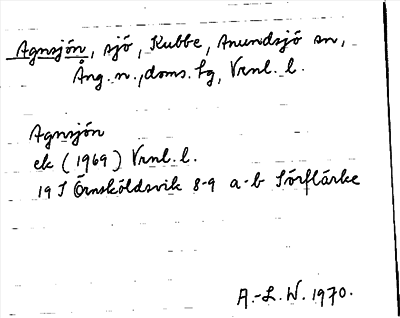 Agnsjön, sjö, Kubbe, Anundsjö sn,
Ång. n., doms. hg, Vrnl. l.
Agnsjön
ek (1969) Vrnl. l.
19 I Örnsköldsvik 8-9 a-b Sörflärke
A.-L. W. 1970.